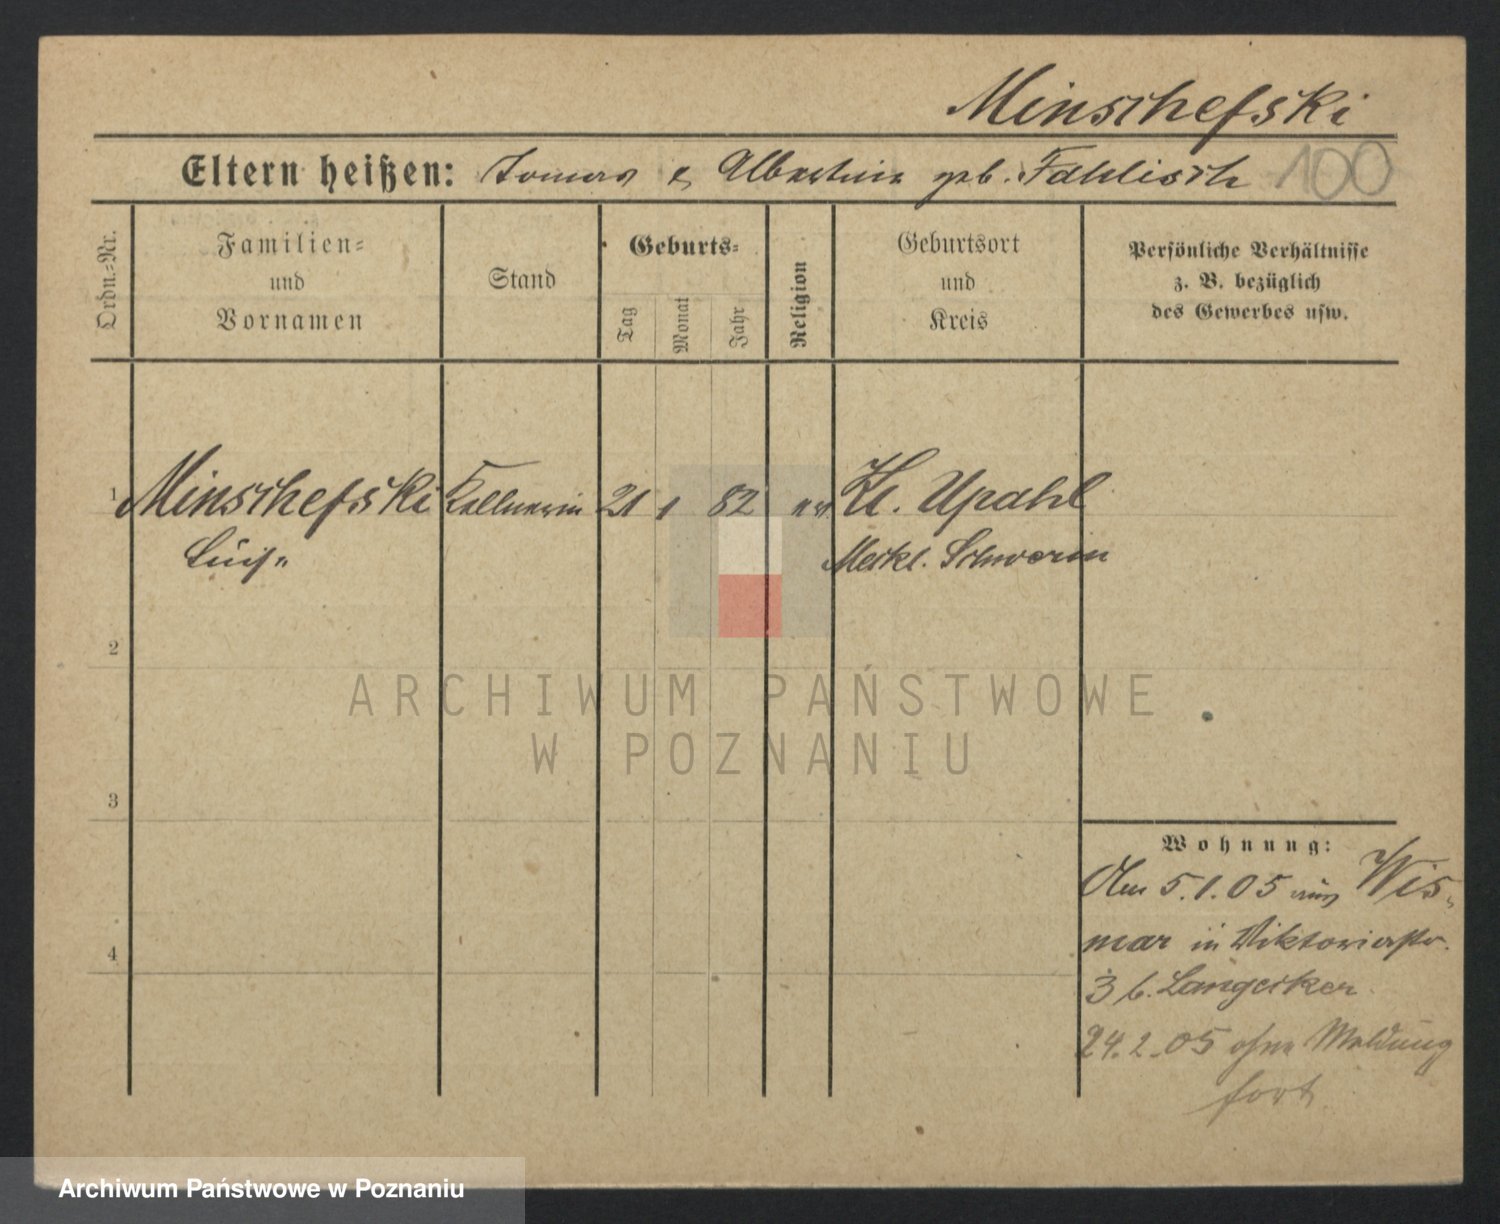 Minschefski
Eltern heißen: Tomas & Albertine geb. Fahlisch 100
Ordn.-Nr.
Familien-
und
Vornamen
Stand
Geburts-
Tag
Monat
Jahr
Religion
Geburtsort
und
Kreis
Persönliche Verhältnisse
z. B. bezüglich
des Gewerbes usw.
1 Minschefski Kellnerin 21 1 82 ev. Kl. Upahl
Luise Meckl. Schwerin
2
ARCHIWUM PAŃSTWOWE
W POZNANIU
3
Wohnung:
Am 5.1.05 aus Wis-
mar in Viktoriastr.
4
3 b. Langecker
24.2.05 ohne Meldung
fort
Archiwum Państwowe w Poznaniu